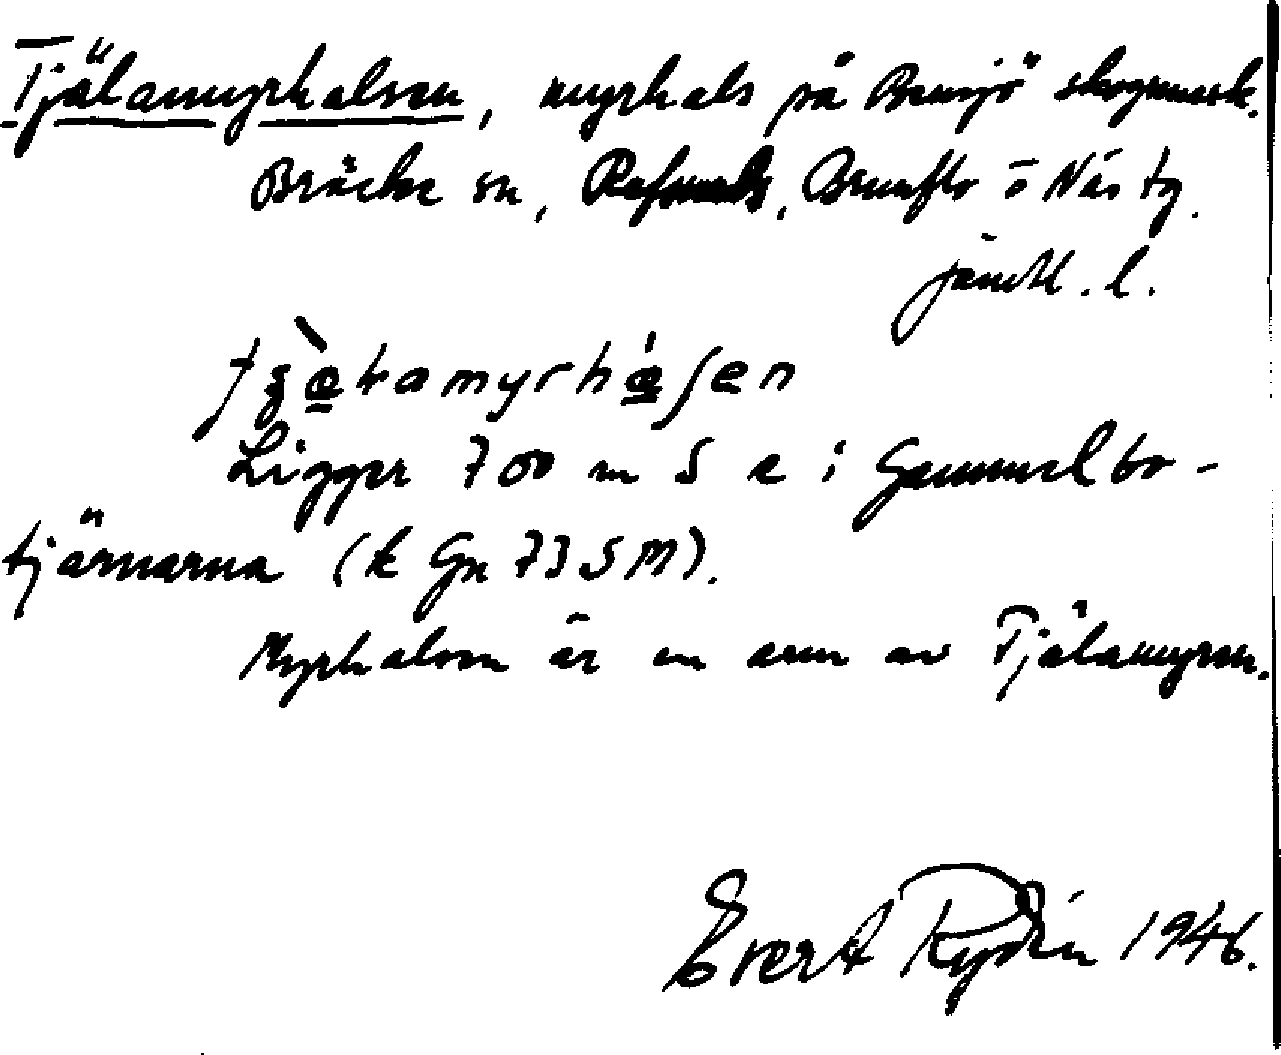 Tjälamyrhalsen, myrhals på Bensjö skogsmark.
Bräcke sn, Refsunds, Brunflo o Näs tg.
Jämtl. l.
Ligger 700 m S e i Gammelbo-
tjärnarna (k Gn 73 5 M).
Myrhalsen är en arm av Tjälamyren.
Evert Rydin 1946.